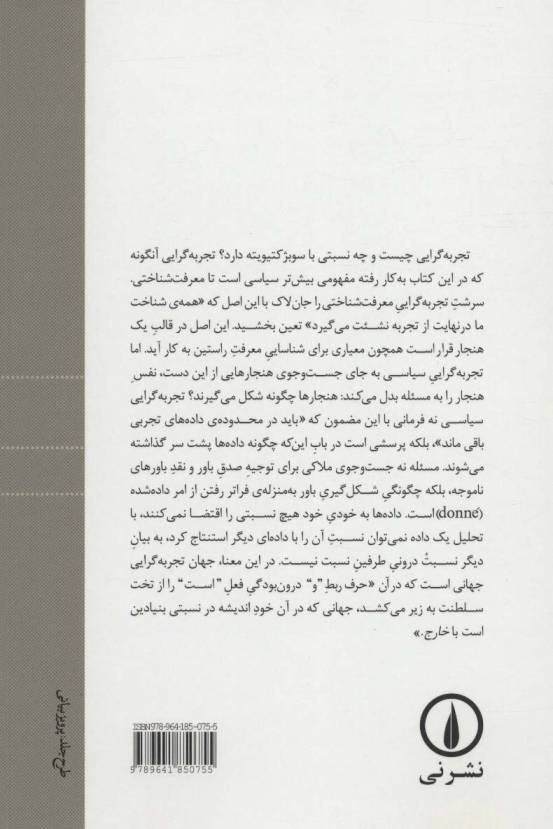 تجربه‌گرایی چیست و چه نسبتی با سوبژکتیویته دارد؟ تجربه‌گرایی آنگونه
که در این کتاب به‌کار رفته مفهومی بیش‌تر سیاسی است تا معرفت‌شناختی.
سرشتِ تجربه‌گراییِ معرفت‌شناختی را جان‌لاک با این اصل که «همه‌ی شناخت
ما درنهایت از تجربه نشئت می‌گیرد» تعین بخشید. این اصل در قالبِ یک
هنجار قرار است همچون معیاری برای شناساییِ معرفتِ راستین به کار آید. اما
تجربه‌گراییِ سیاسی به جای جست‌وجوی هنجارهایی از این دست، نفسِ
هنجار را به مسئله بدل می‌کند: هنجارها چگونه شکل می‌گیرند؟ تجربه‌گرایی
سیاسی نه فرمانی با این مضمون که «باید در محدوده‌ی داده‌های تجربی
باقی ماند»، بلکه پرسشی است در بابِ این‌که چگونه داده‌ها پشت سر گذاشته
می‌شوند. مسئله نه جست‌وجوی ملاکی برای توجیهِ صدقِ باور و نقدِ باورهای
ناموجه، بلکه چگونگیِ شکل‌گیریِ باور به‌منزله‌ی فراتر رفتن از امر داده‌شده
(donné) است. داده‌ها به خودیِ خود هیچ نسبتی را اقتضا نمی‌کنند، با
تحلیل یک داده نمی‌توان نسبتِ آن را با داده‌ای دیگر استنتاج کرد، به بیانِ
دیگر نسبتْ درونیِ طرفینِ نسبت نیست. در این معنا، جهان تجربه‌گرایی
جهانی است که در آن «حرف ربطِ "و" درون‌بودگیِ فعلِ "است" را از تخت
سلطنت به زیر می‌کشد، جهانی که در آن خودِ اندیشه در نسبتی بنیادین
است با خارج.»
طرح جلد: پرویز بیانی
ISBN 978-964-185-075-5
9 789641 850755
نشر نی